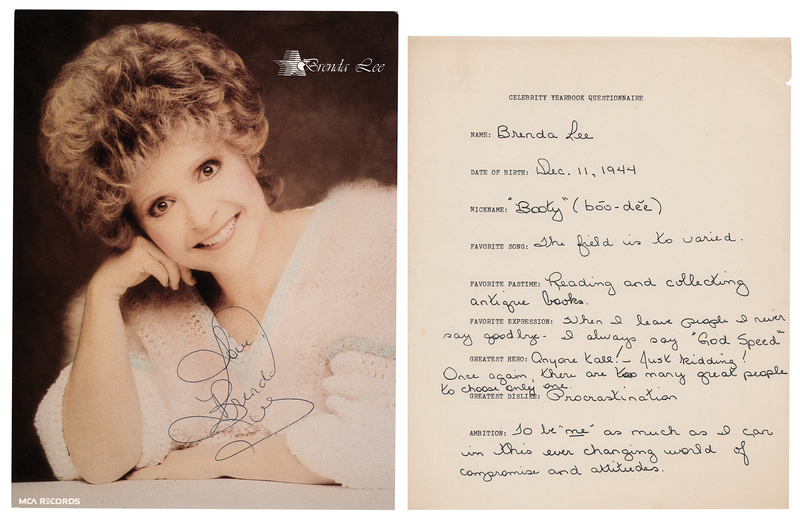 Brenda Lee
Love
Brenda
Lee
MCA RECORDS
CELEBRITY YEARBOOK QUESTIONNAIRE
NAME: Brenda Lee
DATE OF BIRTH: Dec. 11, 1944
NICKNAME: "Booty" (bóo-dĕe)
FAVORITE SONG: The field is to varied.
FAVORITE PASTIME: Reading and collecting
antique books.
FAVORITE EXPRESSION: When I leave people I never
say goodbye - I always say "God Speed"
GREATEST HERO: Anyone tall! - Just kidding!
Once again, there are too many great people
to choose only one.
GREATEST DISLIKE: Procrastination
AMBITION: To be "me" as much as I can
in this ever changing world of
compromise and attitudes.